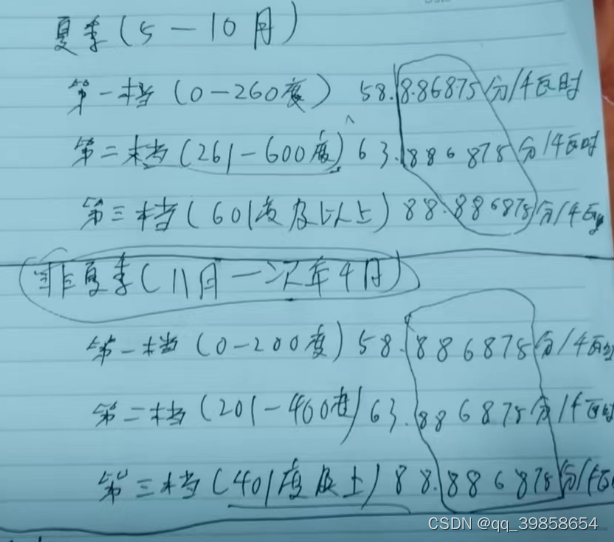 夏季(5—10月)
第一档(0-260度) 58.8.86875分/千瓦时
第二档(261-600度) 63.886875分/千瓦时
第三档(601度及以上) 88.886875分/千瓦
非夏季(11月—次年4月)
第一档(0-200度) 58.886875分/千瓦时
第二档(201-400度) 63.886875分/千瓦时
第三档(401度及上) 88.886875分/千瓦
CSDN @qq_39858654